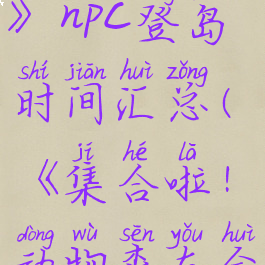 》npc登岛
shí jiān huì zǒng
时间汇总(
jí hé lā
《集合啦！
dòng wù sēn yǒu huì
动物森友会